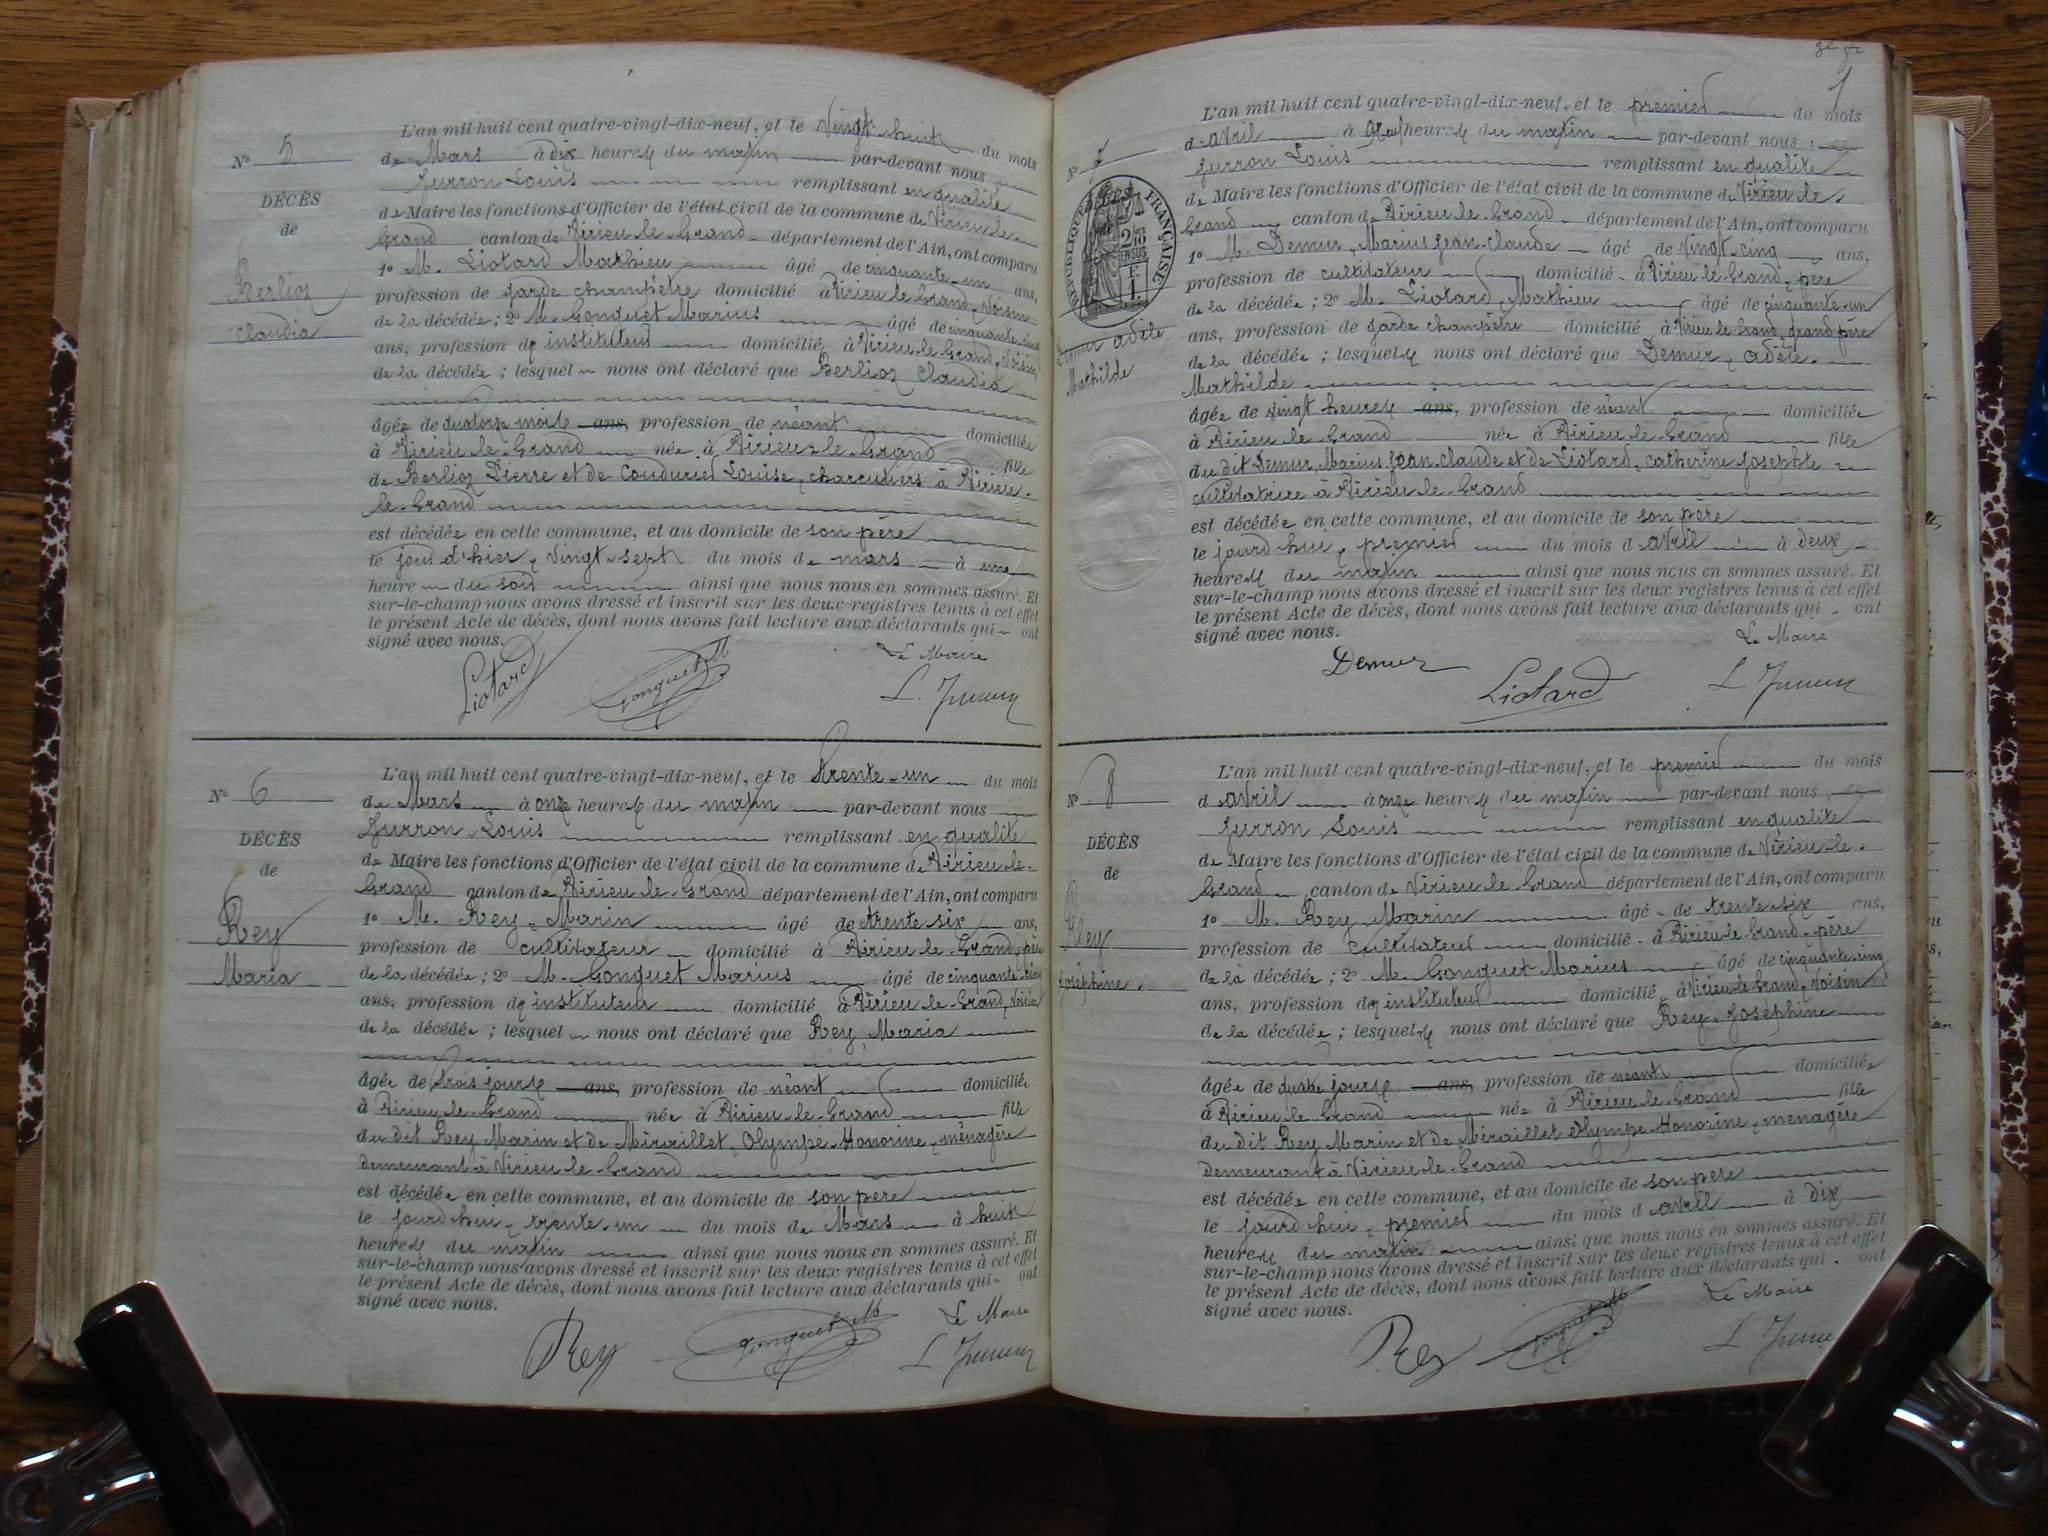 N° 5
DÉCÈS
de
Berlioz
Claudia
L'an mil huit cent quatre-vingt-dix-neuf, et le Vingt-huit du mois
de Mars à dix heures du matin par-devant nous
Louis remplissant en qualité
de Maire les fonctions d'Officier de l'état civil de la commune de Virieu-le-
Grand canton de Virieu-le-Grand département de l'Ain, ont comparu
1° M. Liotard Mathieu âgé de cinquante-un ans,
profession de garde champêtre domicilié à Virieu-le-Grand, Voisin
de la décédée; 2° M. Gonguet Marius âgé de cinquante-cinq
ans, profession de instituteur domicilié à Virieu-le-Grand, Voisin
de la décédée; lesquel nous ont déclaré que Berlioz Claudia
âgée de quatorze mois ans, profession de néant domiciliée
à Virieu-le-Grand née à Virieu-le-Grand fille
de Berlioz Pierre et de Louise, charcutiers à Virieu-
le-Grand
est décédée en cette commune, et au domicile de son père
le jour d'hier, vingt-sept du mois de mars à une
heure du soir ainsi que nous nous en sommes assuré. Et
sur-le-champ nous avons dressé et inscrit sur les deux registres tenus à cet effet
le présent Acte de décès, dont nous avons fait lecture aux déclarants qui ont
signé avec nous.
Le Maire
Liotard Gonguet M L.
N° 6
DÉCÈS
de
Rey
Maria
L'an mil huit cent quatre-vingt-dix-neuf, et le trente-un du mois
de Mars à onze heures du matin par-devant nous
Louis remplissant en qualité
de Maire les fonctions d'Officier de l'état civil de la commune de Virieu-le-
Grand canton de Virieu-le-Grand département de l'Ain, ont comparu
1° M. Rey, Marin âgé de trente-six ans,
profession de cultivateur domicilié à Virieu-le-Grand, père
de la décédée; 2° M. Gonguet Marius âgé de cinquante-cinq
ans, profession de instituteur domicilié à Virieu-le-Grand, Voisin
de la décédée; lesquel nous ont déclaré que Rey, Maria
âgée de trois jours ans, profession de néant domiciliée
à Virieu-le-Grand née à Virieu-le-Grand fille
du dit Rey Marin et de Miraillet, Olympe-Honorine, ménagère
demeurant à Virieu-le-Grand
est décédée en cette commune, et au domicile de son père
le jourd'hui, trente-un du mois de Mars à huit
heures du matin ainsi que nous nous en sommes assuré. Et
sur-le-champ nous avons dressé et inscrit sur les deux registres tenus à cet effet
le présent Acte de décès, dont nous avons fait lecture aux déclarants qui ont
signé avec nous.
Le Maire
Rey Gonguet M L.
N° 7
DÉCÈS
de
RÉPUBLIQUE FRANÇAISE
2/10 EN SUS
F.
1.
Demur Adèle
Mathilde
L'an mil huit cent quatre-vingt-dix-neuf, et le premier du mois
d'avril à neuf heures du matin par-devant nous
Louis remplissant en qualité
de Maire les fonctions d'Officier de l'état civil de la commune de Virieu-le-
Grand canton de Virieu-le-Grand département de l'Ain, ont comparu
1° M. Demur, Marius Jean-Claude âgé de vingt-cinq ans,
profession de cultivateur domicilié à Virieu-le-Grand, père
de la décédée; 2° M. Liotard, Mathieu âgé de cinquante-un
ans, profession de garde champêtre domicilié à Virieu-le-Grand, grand père
de la décédée; lesquels nous ont déclaré que Demur, Adèle-
Mathilde
âgée de vingt heures ans, profession de néant domiciliée
à Virieu-le-Grand née à Virieu-le-Grand fille
du dit Demur, Marius Jean-Claude et de Liotard, Catherine Josephte
cultivatrice à Virieu-le-Grand
est décédée en cette commune, et au domicile de son père
le jourd'hui, premier du mois d'avril à deux
heures du matin ainsi que nous nous en sommes assuré. Et
sur-le-champ nous avons dressé et inscrit sur les deux registres tenus à cet effet
le présent Acte de décès, dont nous avons fait lecture aux déclarants qui ont
signé avec nous.
Le Maire
Demur Liotard L.
N° 8
DÉCÈS
de
Rey
Joséphine
L'an mil huit cent quatre-vingt-dix-neuf, et le premier du mois
d'avril à onze heures du matin par-devant nous
Louis remplissant en qualité
de Maire les fonctions d'Officier de l'état civil de la commune de Virieu-le-
Grand canton de Virieu-le-Grand département de l'Ain, ont comparu
1° M. Rey, Marin âgé de trente-six ans,
profession de cultivateur domicilié à Virieu-le-Grand, père
de la décédée; 2° M. Gonguet Marius âgé de cinquante-cinq
ans, profession de instituteur domicilié à Virieu-le-Grand, Voisin
de la décédée; lesquels nous ont déclaré que Rey, Joséphine
âgée de quatre jours ans, profession de néant domiciliée
à Virieu-le-Grand née à Virieu-le-Grand fille
du dit Rey Marin et de Méraillet Olympe-Honorine, ménagère
demeurant à Virieu-le-Grand
est décédée en cette commune, et au domicile de son père
le jourd'hui, premier du mois d'avril à dix
heures du matin ainsi que nous nous en sommes assuré. Et
sur-le-champ nous avons dressé et inscrit sur les deux registres tenus à cet effet
le présent Acte de décès, dont nous avons fait lecture aux déclarants qui ont
signé avec nous.
Le Maire
Rey Gonguet M L.